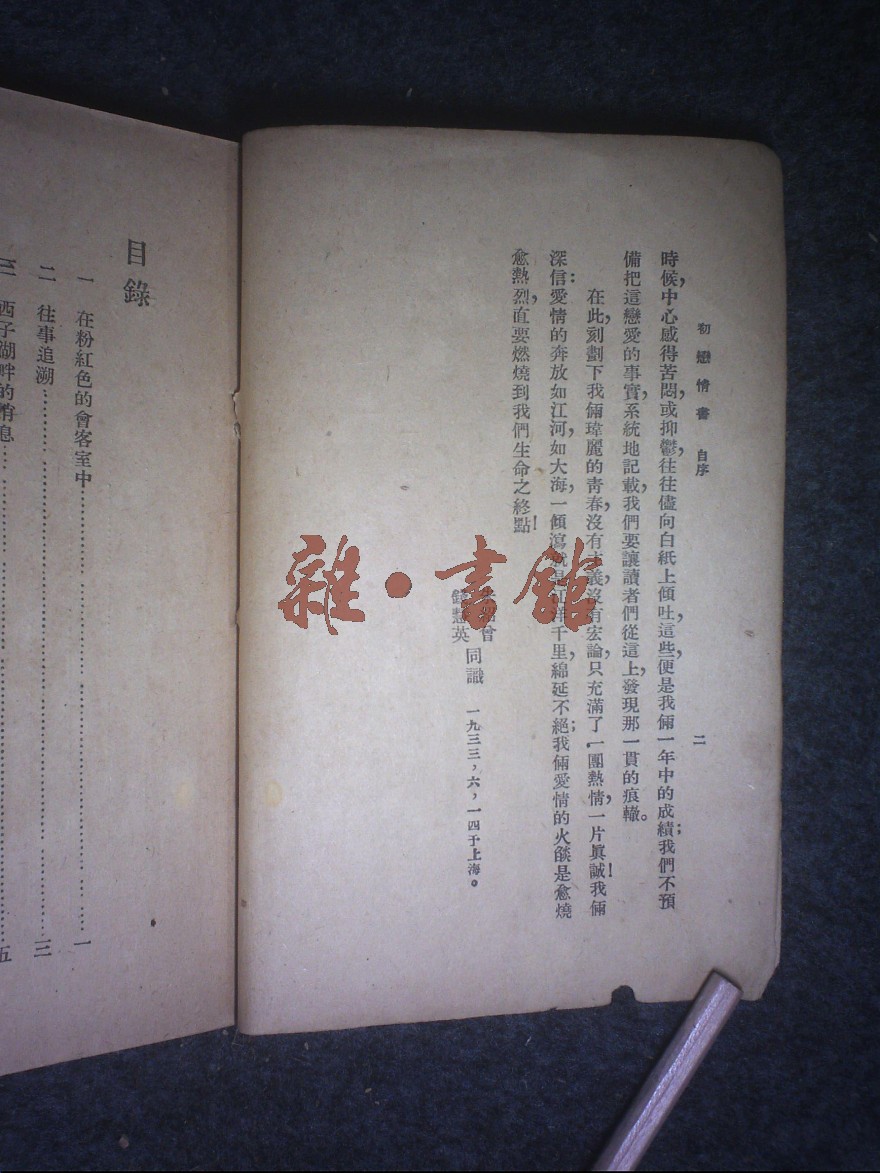 初戀情書 自序
二
時候,中心感得苦悶,或抑鬱,往往儘向白紙上傾吐,這些,便是我倆一年中的成績;我們不預
備把這戀愛的事實,系統地記載,我們要讓讀者們從這上,發現那一貫的痕轍。
在此,刻劃下我倆瑋麗的靑春,沒有主義,沒有宏論,只充滿了一團熱情,一片眞誠!我倆
深信:愛情的奔放如江河,如大海,一傾瀉就是江洋千里,綿延不絕;我倆愛情的火燄是愈燒
愈熱烈,直要燃燒到我們生命之終點!
曾
慧英
同識
一九三三,六,一四于上海。
目錄
一 在粉紅色的會客室中……一
二 往事追溯……三
三 西子湖畔的消息……五
雜·書館